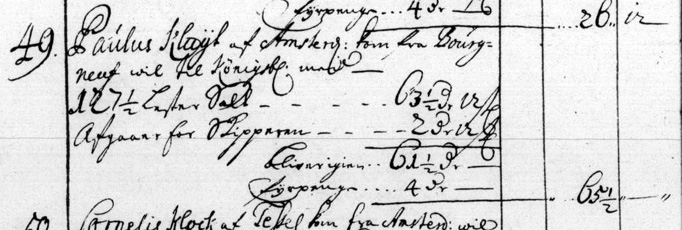 Fyrpenge .. 4 dr — 26 .. 12
49. Paulus Kluyt af Amsterd: kom fra Bourg=
neuf wil til Königsb. med —
127½ Lester Salt — — — 63½ dr 12 ß
Afgaaer for Skipperen — — — 2 dr 12 ß
bliver igien .. 61½ dr —
Fyrpenge .. 4 dr — 65½ „ — „
50. Cornelis Klock af Tessel kom fra Amsterd: wil